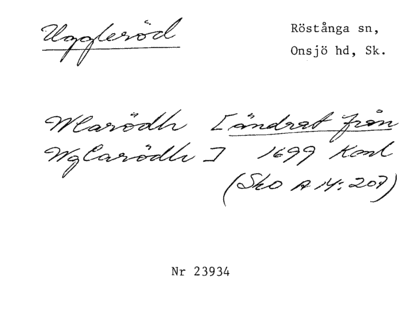 Uggleröd
Röstånga sn,
Onsjö hd, Sk.
Wlarödh [ändrat från
Wglarödh] 1699 Konl
(Sko A 14:207)
Nr 23934